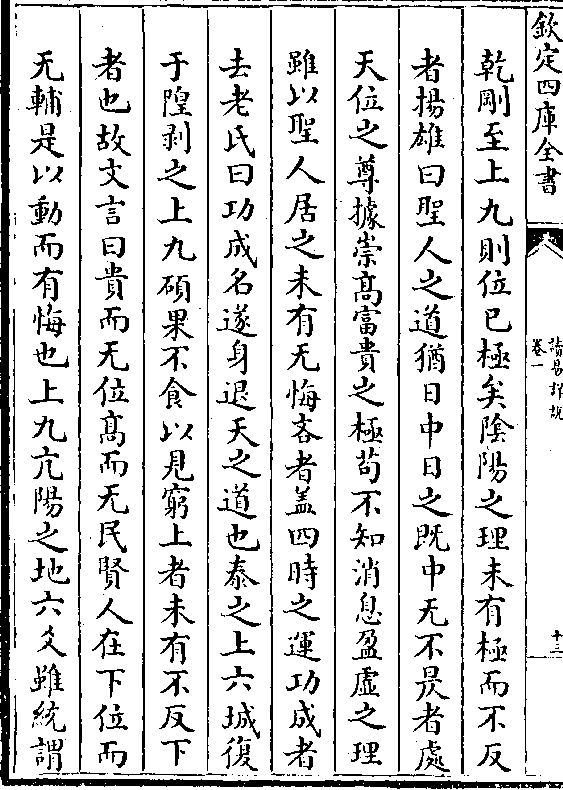 欽定四庫全書
讀易詳說
卷一
十三
乾剛至上九則位已極矣陰陽之理未有極而不反
者揚雄曰聖人之道猶日中日之既中无不昃者處
天位之尊據崇髙富貴之極茍不知消息盈虛之理
雖以聖人居之未有无悔吝者盖四時之運功成者
去老氏曰功成名遂身退天之道也泰之上六城復
于隍剥之上九碩果不食以見窮上者未有不反下
者也故文言曰貴而无位髙而无民賢人在下位而
无輔是以動而有悔也上九亢陽之地六爻雖統謂